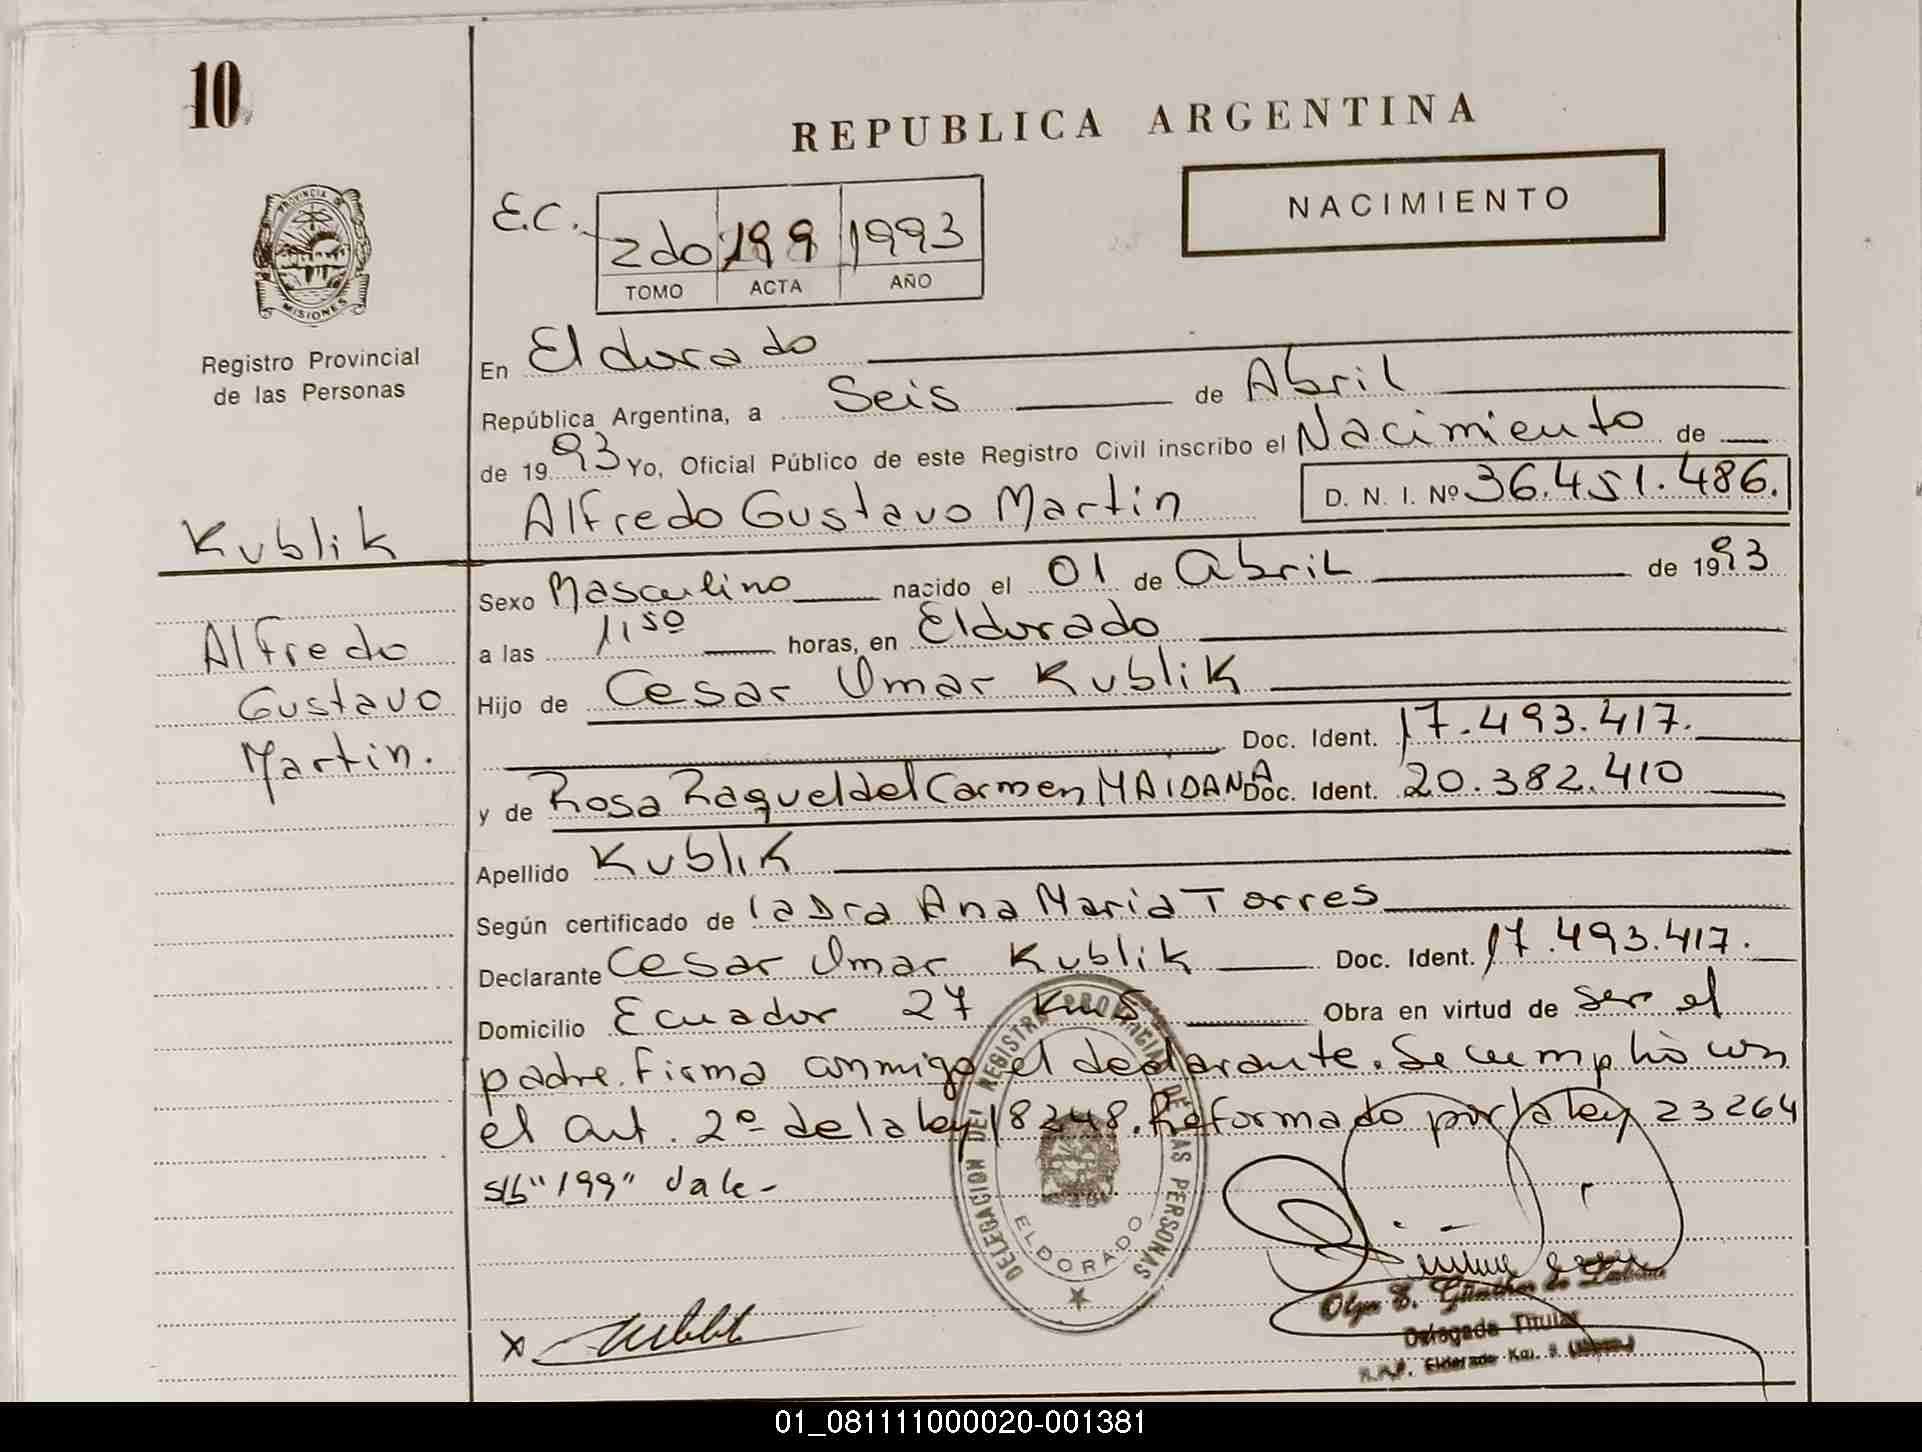 10
REPUBLICA ARGENTINA
PROVINCIA DE
MISIONES
Registro Provincial
de las Personas
NACIMIENTO
E.C. 2do 199 1993
TOMO ACTA AÑO
En Eldorado
República Argentina, a Seis de Abril
de 1993 Yo, Oficial Público de este Registro Civil inscribo el Nacimiento de
Alfredo Gustavo Martin D. N. I. Nº 36.451.486.
Kublik
Alfredo
Gustavo
Martin.
Sexo Masculino nacido el 01 de Abril de 1993
a las 11 50 horas, en Eldorado
Hijo de Cesar Omar Kublik
Doc. Ident. 17.493.417.
y de Rosa Raquel del Carmen MAIDANA Doc. Ident. 20.382.410
Apellido Kublik
Según certificado de la Dra Ana Maria Torres
Declarante Cesar Omar Kublik Doc. Ident. 17.493.417.
Domicilio Ecuador 27 Km 5 Obra en virtud de ser el
padre. Firma conmigo el declarante. Se cumplió con
el art. 2º de la ley 18248. Reformado por la ley 23264
s/b "199" Vale-
DELEGACION DEL REGISTRO PROVINCIAL DE LAS PERSONAS
ELDORADO
Olga E. Günther de
Delegada Titular
Eldorado Km. 9
01_081111000020-001381